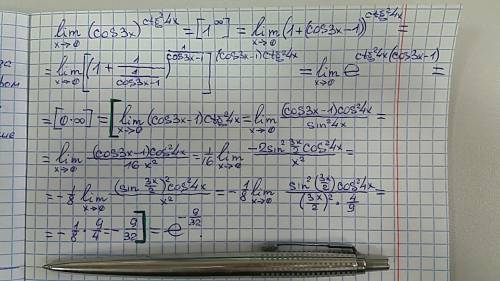 lim x→0 (cos3x)^(ctg²4x) = [1^∞] = lim x→0 (1+(cos3x-1))^(ctg²4x) =
= lim x→0 [(1+1/(1/(cos3x-1)))^(1/(cos3x-1))]^((cos3x-1)ctg²4x) = lim x→0 e^(ctg²4x(cos3x-1)) =
= [0·∞] = [lim x→0 (cos3x-1)ctg²4x = lim x→0 (cos3x-1)cos²4x/sin²4x =
= lim x→0 (cos3x-1)cos²4x/16x² = 1/16 lim x→0 -2sin² 3x/2 cos²4x/x² =
= -1/8 lim x→0 (sin 3x/2)² cos²4x/x² = -1/8 lim x→0 sin²(3x/2)cos²4x/((3x/2)²·4/9) =
= -1/8 · 9/4 = -9/32] = e^(-9/32).